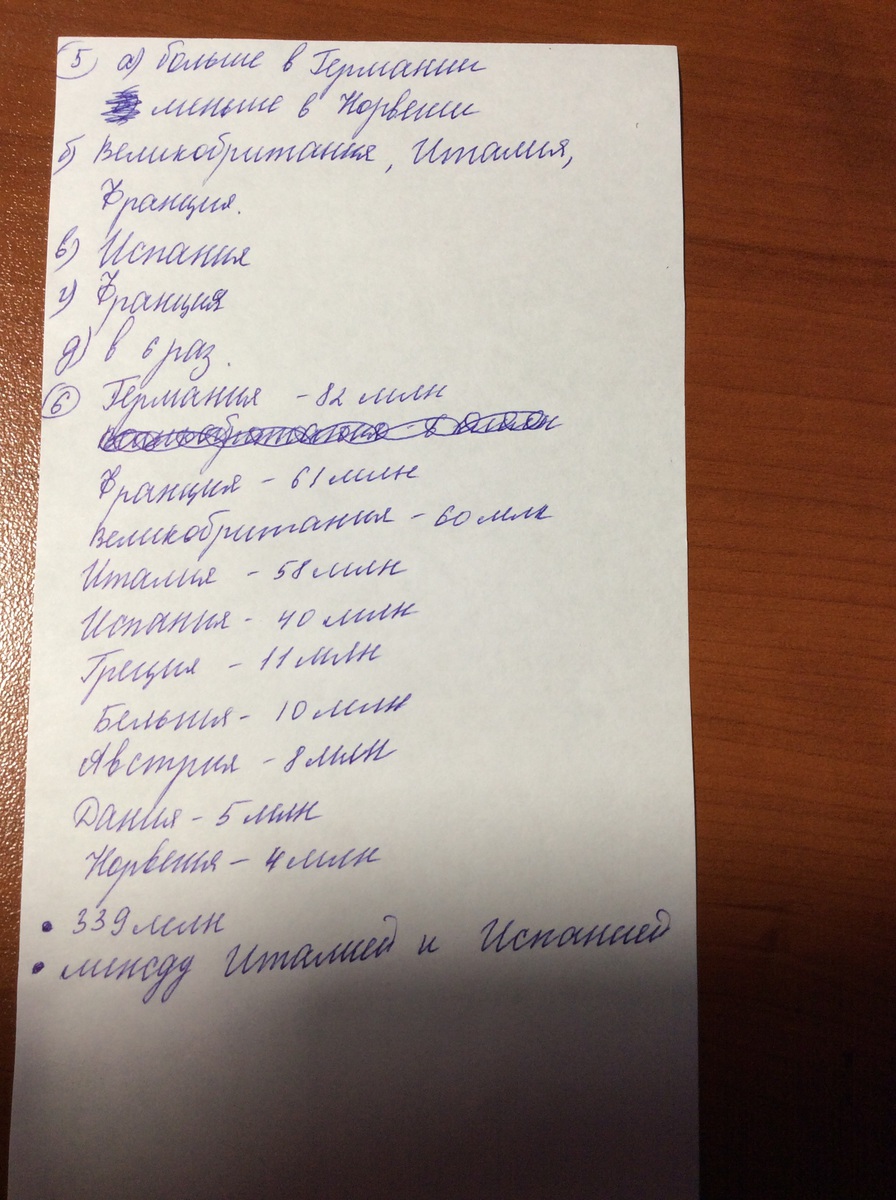 5 а) больше в Германии
меньше в Норвегии
б) Великобритания, Италия,
Франция.
в) Испания
г) Франция
д) в 6 раз.
6 Германия - 82 млн
Франция - 61 млн
Великобритания - 60 млн
Италия - 58 млн
Испания - 40 млн
Греция - 11 млн
Бельгия - 10 млн
Австрия - 8 млн
Дания - 5 млн
Норвегия - 4 млн
• 339 млн
• между Италией и Испанией